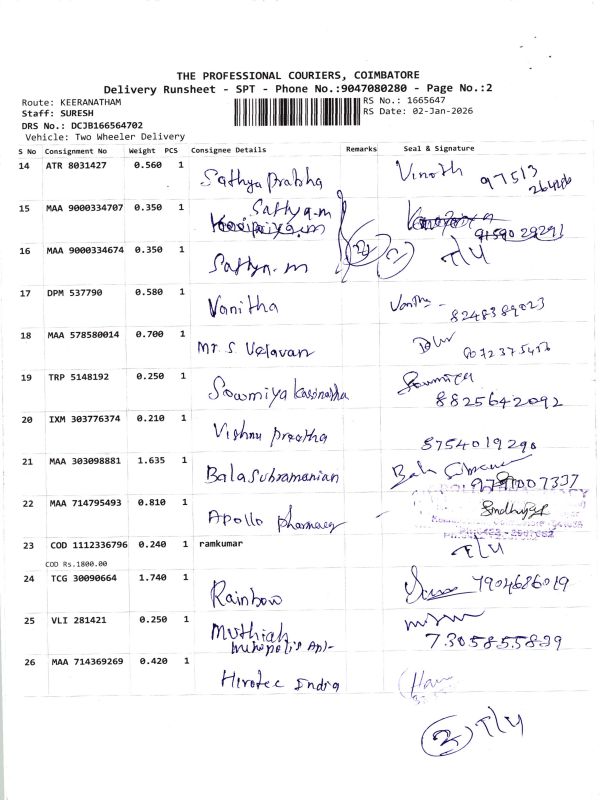 THE PROFESSIONAL COURIERS, COIMBATORE
Delivery Runsheet - SPT - Phone No.:9047080280 - Page No.:2
Route: KEERANATHAM
Staff: SURESH
DRS No.: DCJB166564702
Vehicle: Two Wheeler Delivery
RS No.: 1665647
RS Date: 02-Jan-2026
S No Consignment No Weight PCS Consignee Details Remarks Seal & Signature
14 ATR 8031427 0.560 1 Sathya Prabha Vinoth 97513
15 MAA 9000334707 0.350 1 Sathya.m 9159029291
16 MAA 9000334674 0.350 1 Sathya.m T/4
17 DPM 537790 0.580 1 Vanitha Vanitha 8248389023
18 MAA 578580014 0.700 1 Mr. S. Velavan
19 TRP 5148192 0.250 1 Sowmiya Sowmiya 8825642092
20 IXM 303776374 0.210 1 Vishnu 8754019290
21 MAA 303098881 1.635 1 BalaSubramanian Bala 9791007337
22 MAA 714795493 0.810 1 Apollo Pharmacy
23 COD 1112336796 0.240 1 ramkumar T/4
COD Rs.1800.00
24 TCG 30090664 1.740 1 Rainbow 7904686019
25 VLI 281421 0.250 1 Muthiah 7305855829
26 MAA 714369269 0.420 1 Hirotec India
2 T/4